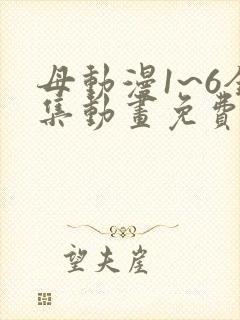 母動漫1~6全
集動畫免費
望夫崖